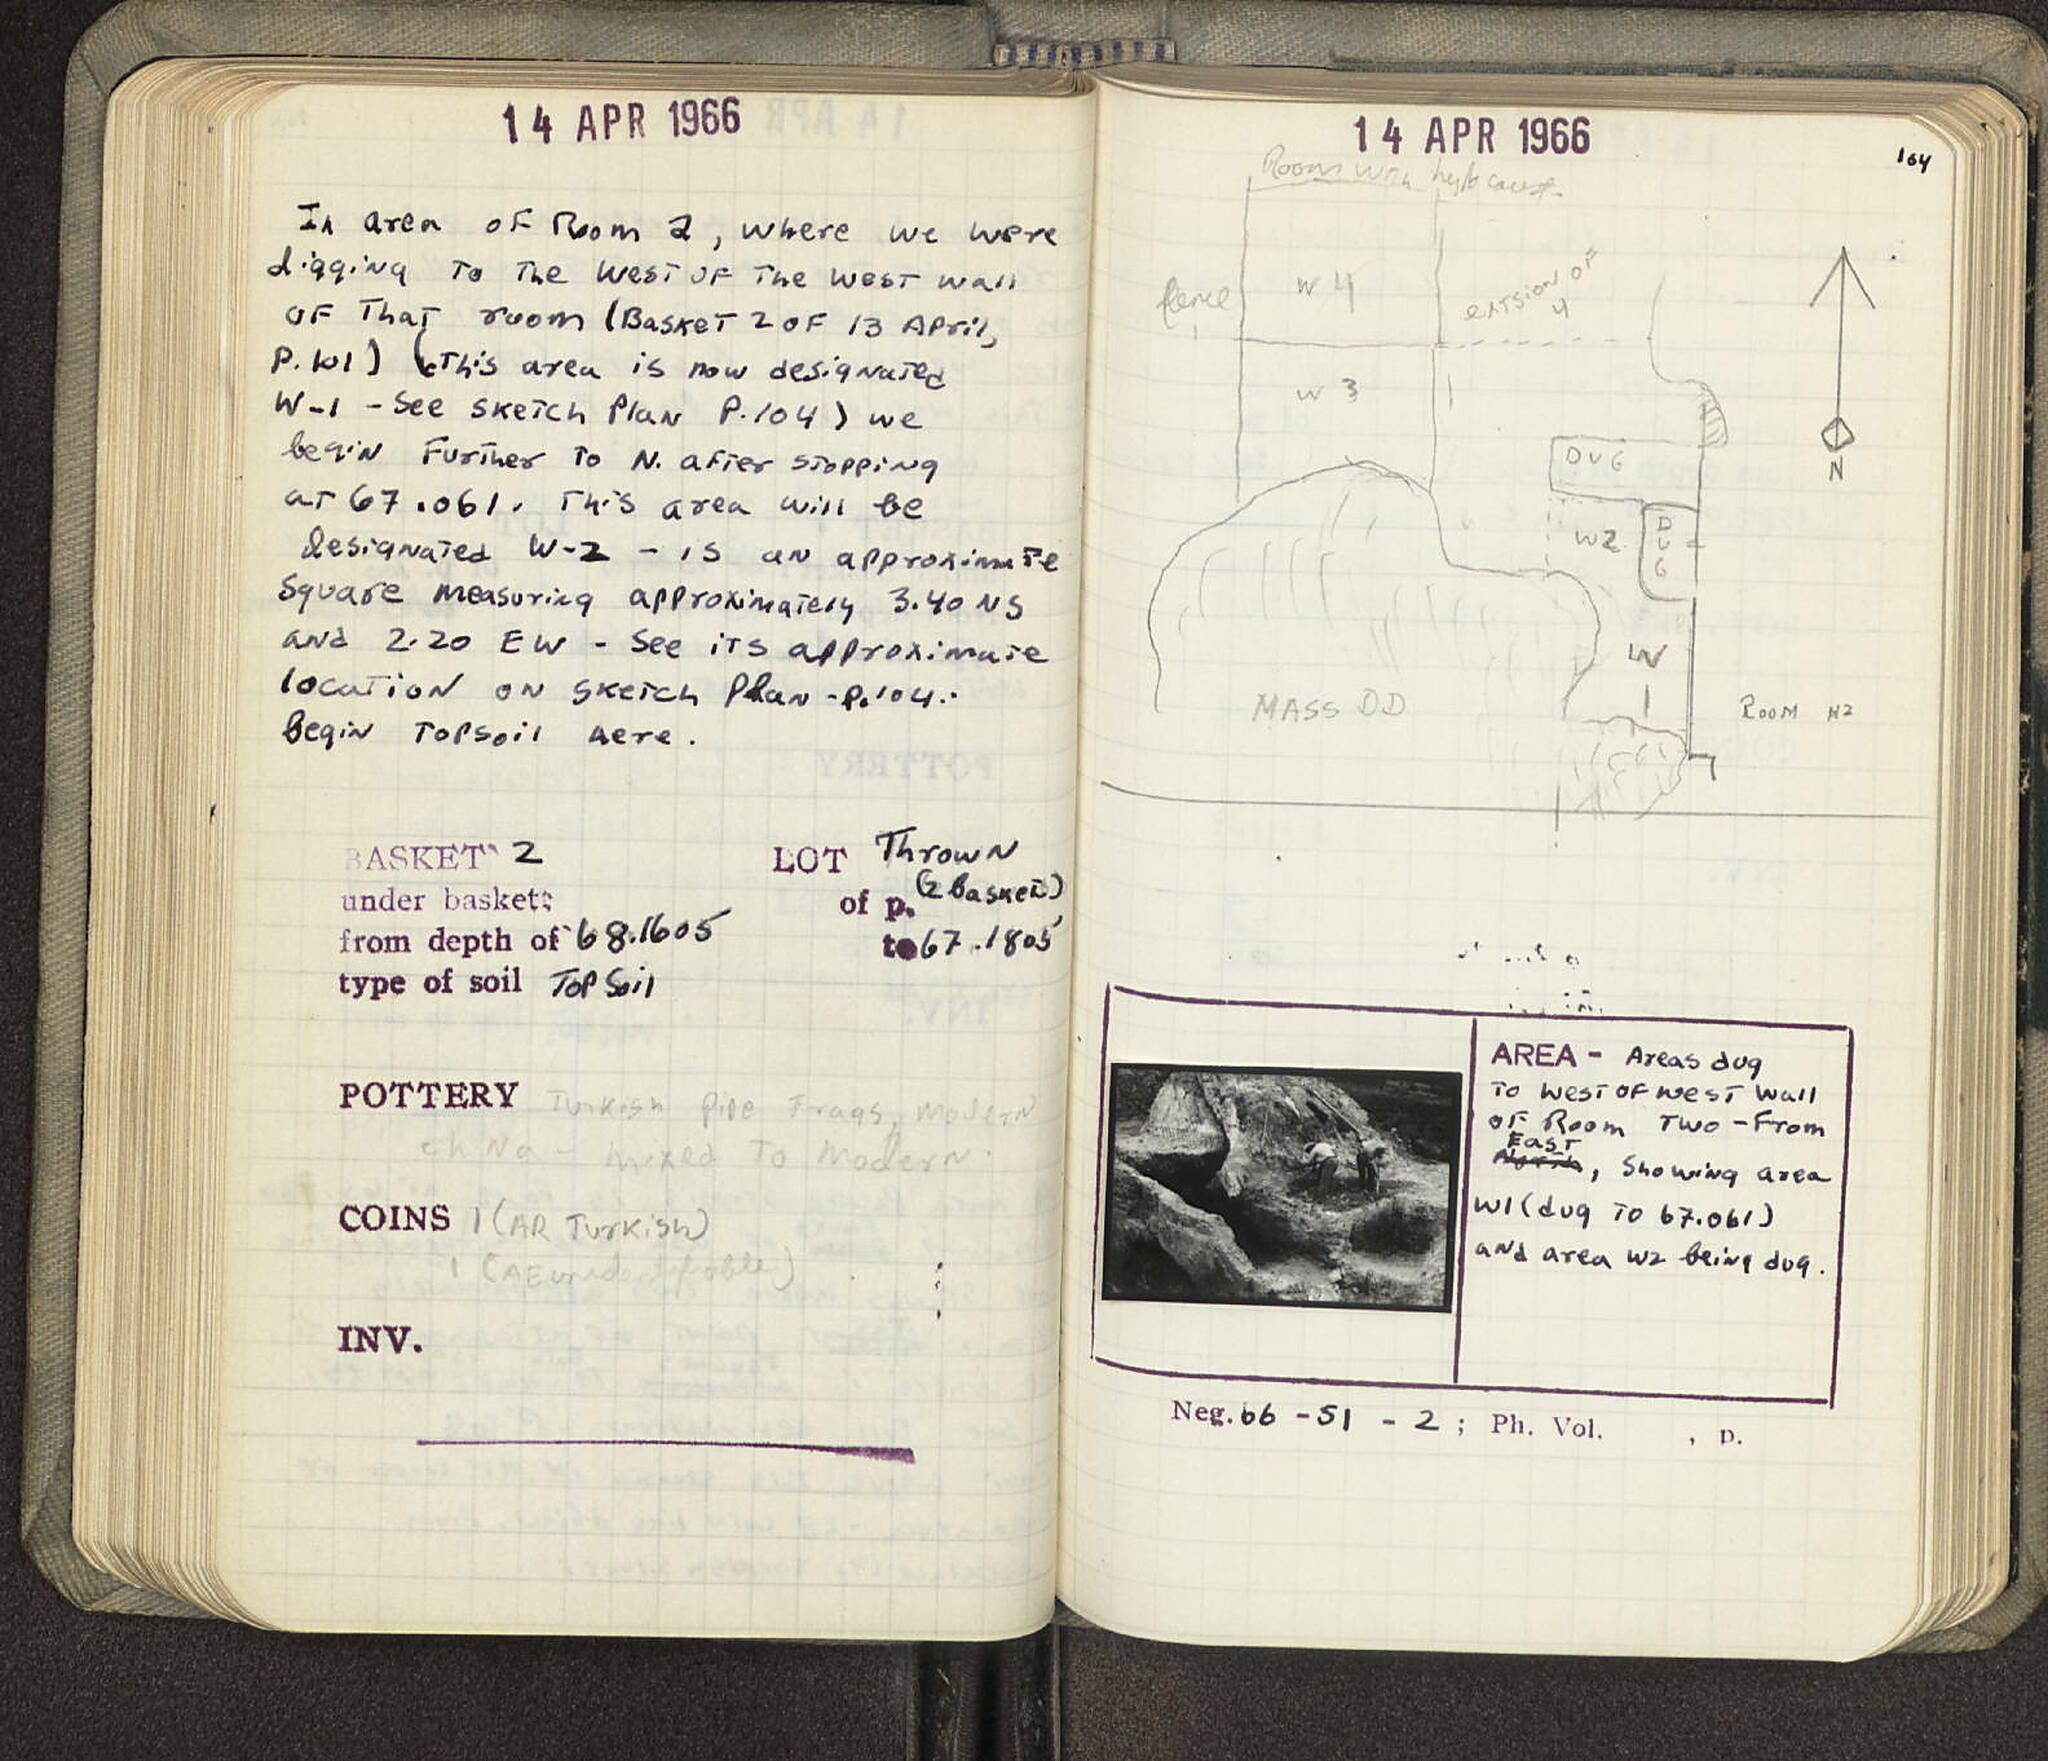 14 APR 1966
In area of Room 2, where we were
digging to the West of the west wall
of that room (Basket 2 of 13 April,
P.101) (This area is now designated
W-1 - See sketch Plan P.104) we
begin Further to N. after stopping
at 67.061. This area will be
designated W-2 - is an approximate
square measuring approximately 3.40 NS
and 2.20 EW - See its approximate
location on sketch Plan - P.104.
begin Topsoil here.
BASKET 2
under basket:
from depth of 68.1605
type of soil Top Soil
LOT Thrown
(2 baskets)
of p.
to 67.1805
POTTERY Turkish Pipe Frags, modern
china - mixed To Modern.
COINS 1 (AR Turkish)
1 (AE unidentifiable)
INV.
14 APR 1966
104
Room with hypocaust
fence
W 4
extsion of
4
W 3
DUG
W2
DUG
W
1
MASS DD
ROOM #2
N
AREA - Areas dug
To West of West Wall
of Room Two - From
East
North, showing area
W1 (dug To 67.061)
and area W2 being dug.
Neg. 66 - 51 - 2 ; Ph. Vol. , p.